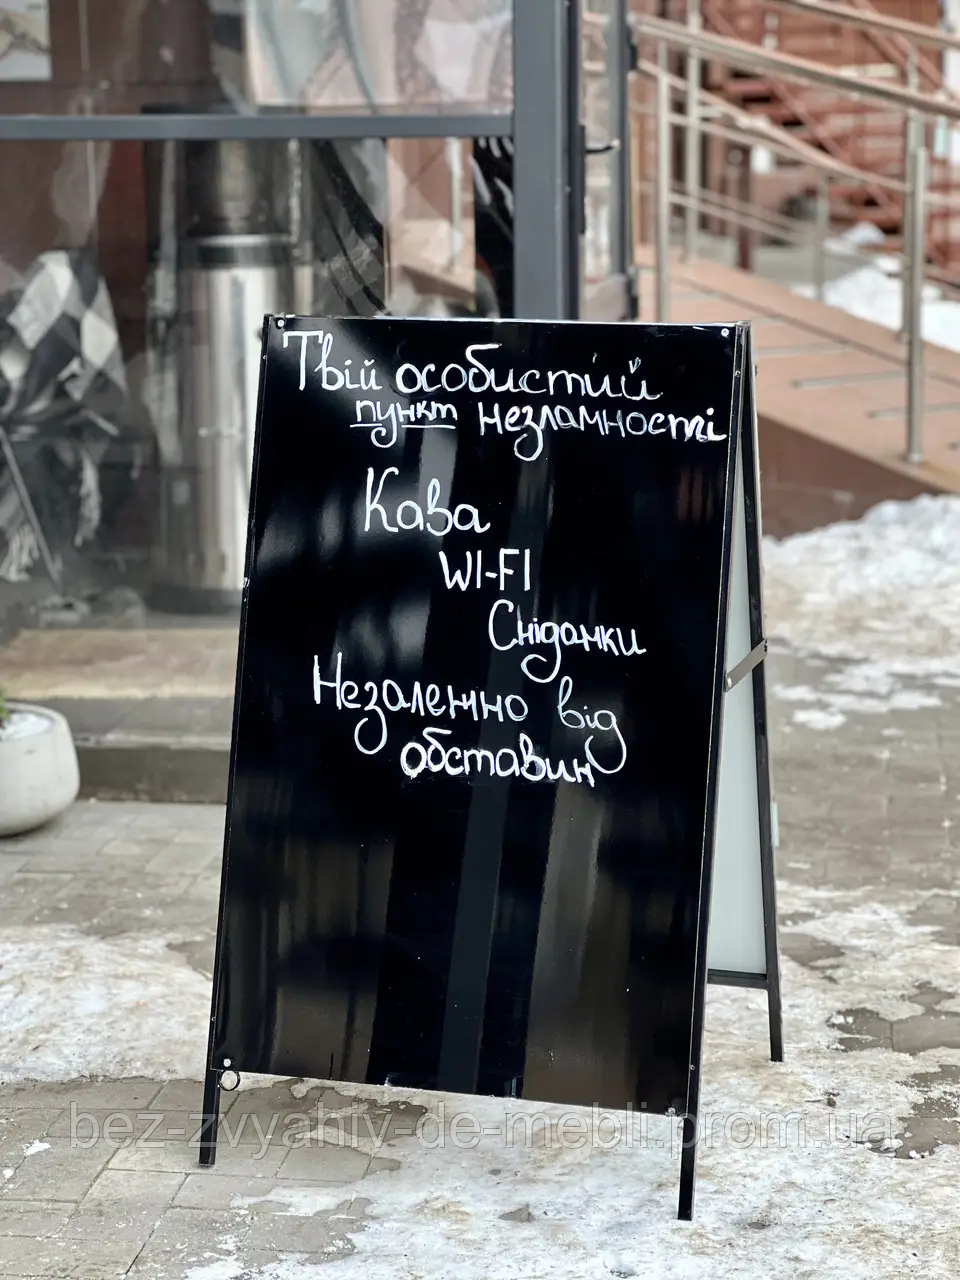 Твій особистий
пункт незламності
Кава
WI-FI
Сніданки
Незалежно від
обставин
bez-zvyahiv-de-mebli.prom.ua